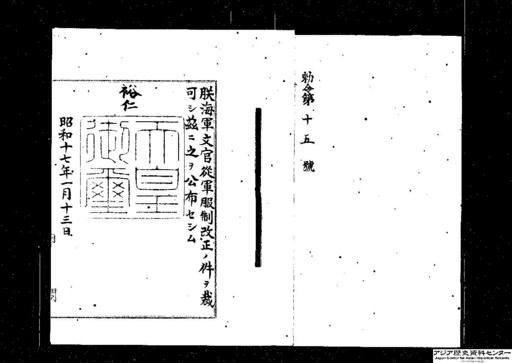 勅令第十五號
朕海軍文官從軍服制改正ノ件ヲ裁
可シ茲ニ之ヲ公布セシム
裕仁
天皇
御璽
昭和十七年一月十三日
アジア歴史資料センター
Japan Center for Asian Historical Records